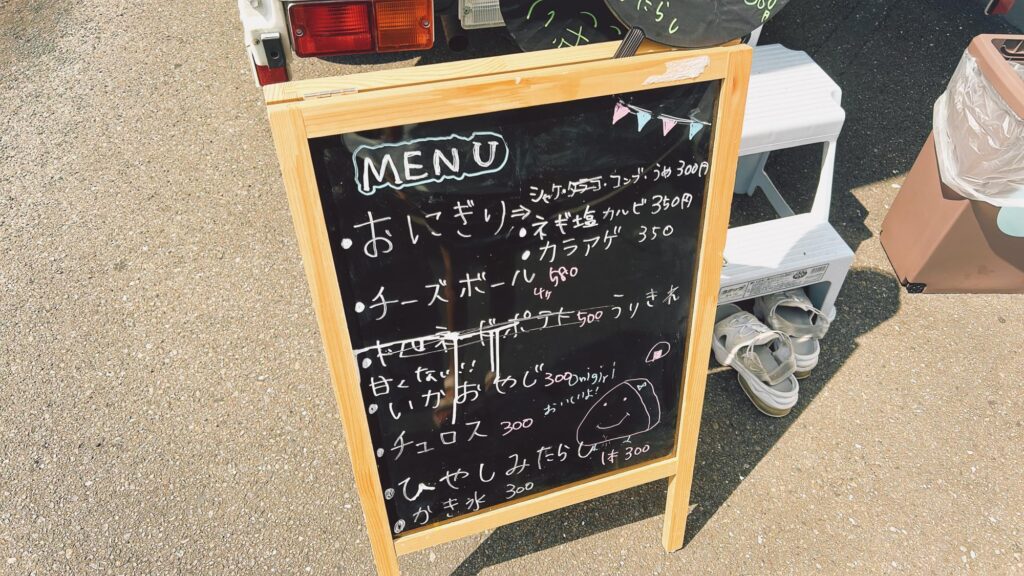 MENU
おにぎり⇒
シャケ・タラコ・コンブ・うめ300円
・ネギ塩カルビ350円
・カラアゲ 350
・チーズボール 580
4ヶ
ポテト500 うりきれ
甘くない!!
・いかおやじ300
onigiri
おいしいよ!
・チュロス 300
・ひやしみたらし
1本300
・かき氷 300